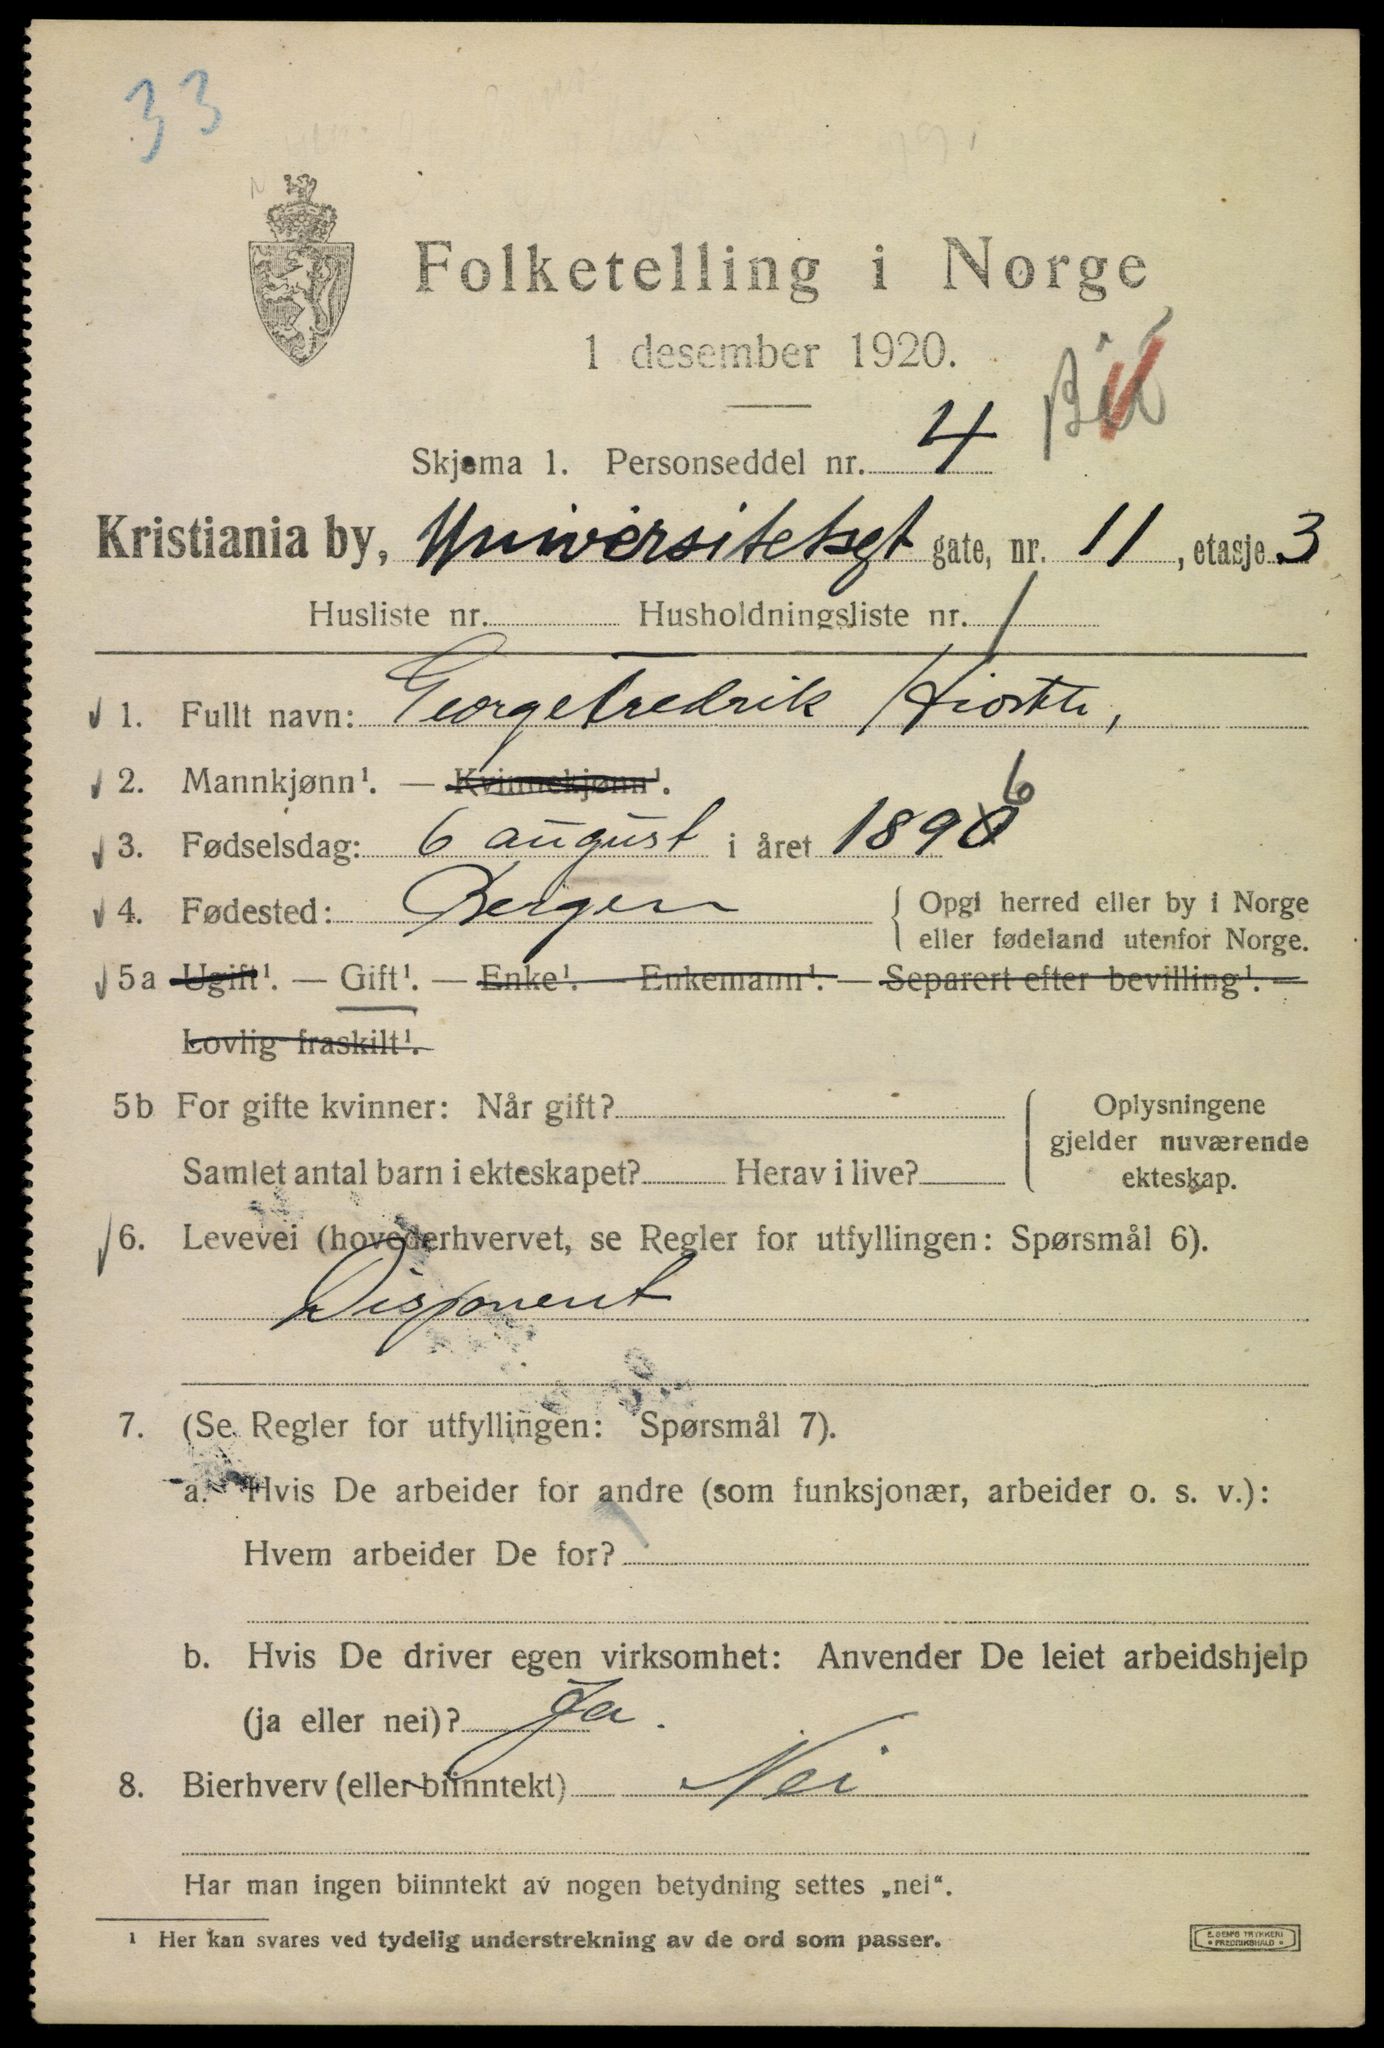 33
Folketelling i Norge
1 desember 1920.
Skjema 1. Personseddel nr. 4
Kristiania by, Universitetsgt gate, nr. 11, etasje 3
Husliste nr. Husholdningsliste nr. 1
1. Fullt navn: George Fredrik
2. Mannkjønn¹. — Kvinnekjønn¹.
6
3. Fødselsdag: 6 august i året 1890
4. Fødested: Bergen { Opgi herred eller by i Norge
eller fødeland utenfor Norge.
5a Ugift¹. — Gift¹. — Enke¹. — Enkemann¹. — Separert efter bevilling¹. —
Lovlig fraskilt¹.
5b For gifte kvinner: Når gift? { Oplysningene
gjelder nuværende
Samlet antal barn i ekteskapet? Herav i live? ekteskap.
6. Levevei (hovederhvervet, se Regler for utfyllingen: Spørsmål 6).
Disponent
7. (Se Regler for utfyllingen: Spørsmål 7).
a. Hvis De arbeider for andre (som funksjonær, arbeider o. s. v.):
Hvem arbeider De for?
b. Hvis De driver egen virksomhet: Anvender De leiet arbeidshjelp
(ja eller nei)? Ja.
8. Bierhverv (eller biinntekt) Nei
Har man ingen biinntekt av nogen betydning settes „nei“.
¹ Her kan svares ved tydelig understrekning av de ord som passer.
E. SEM'S TRYKKERI
• FREDRIKSHALD •